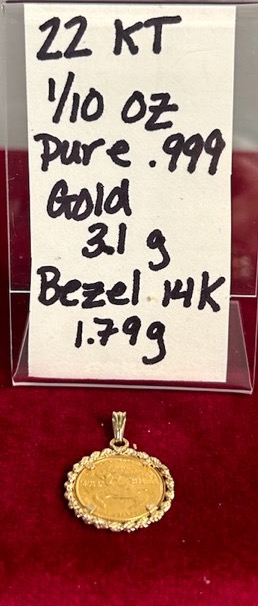 22 KT
1/10 OZ
Pure .999
Gold
3.1 g
Bezel 14K
1.79g